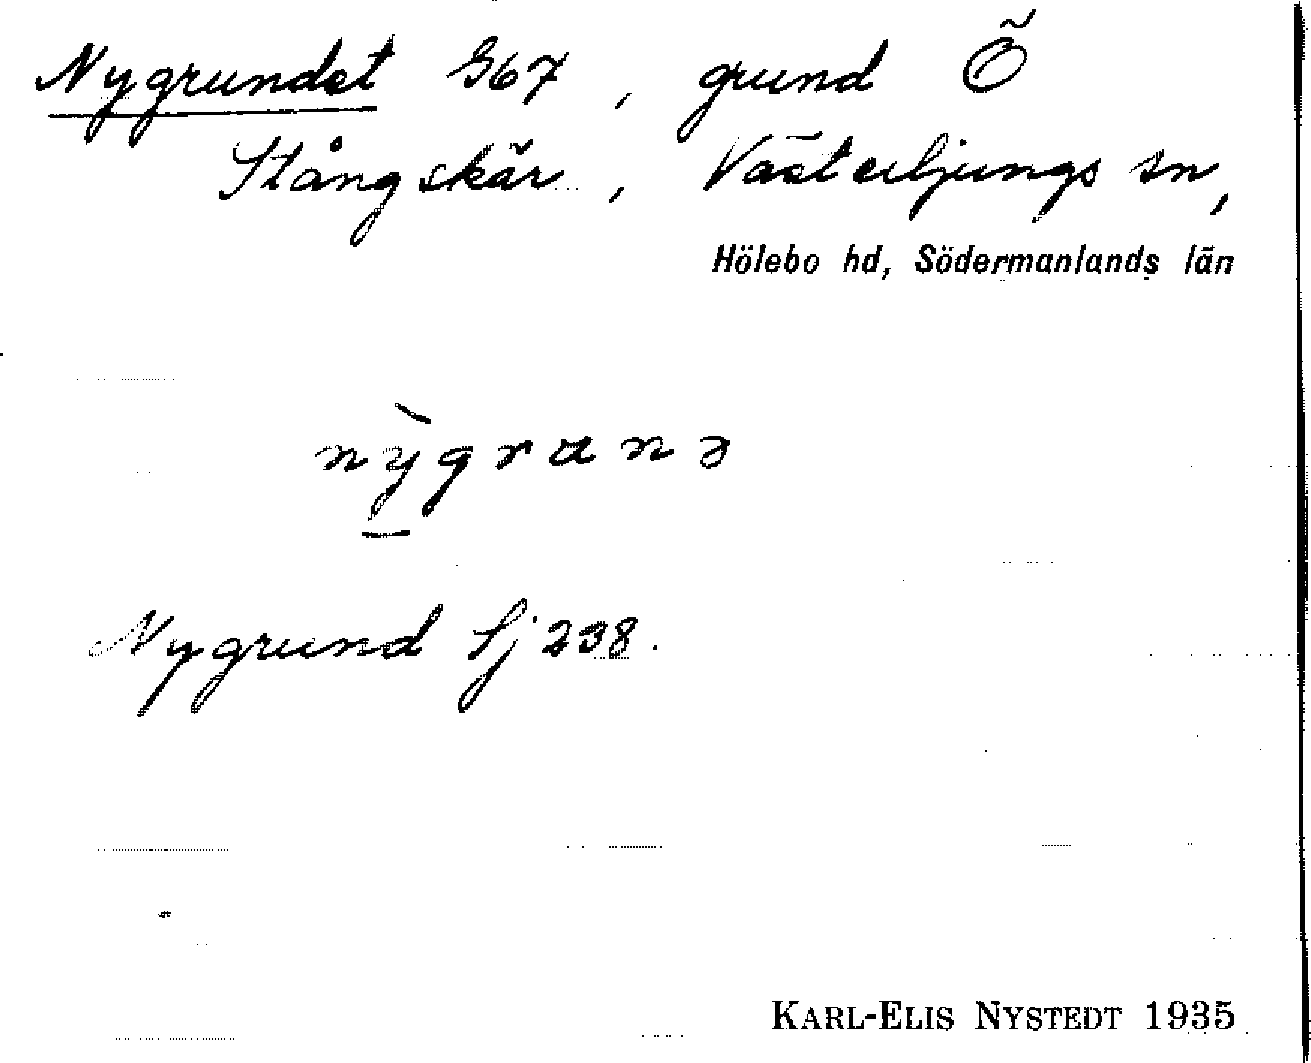 Nygrundet G67, grund Ö
Stångskär, Västerljungs sn,
Hölebo hd, Södermanlands län
nỳgrunə
Nygrund Sj 238.
KARL-ELIS NYSTEDT 1935